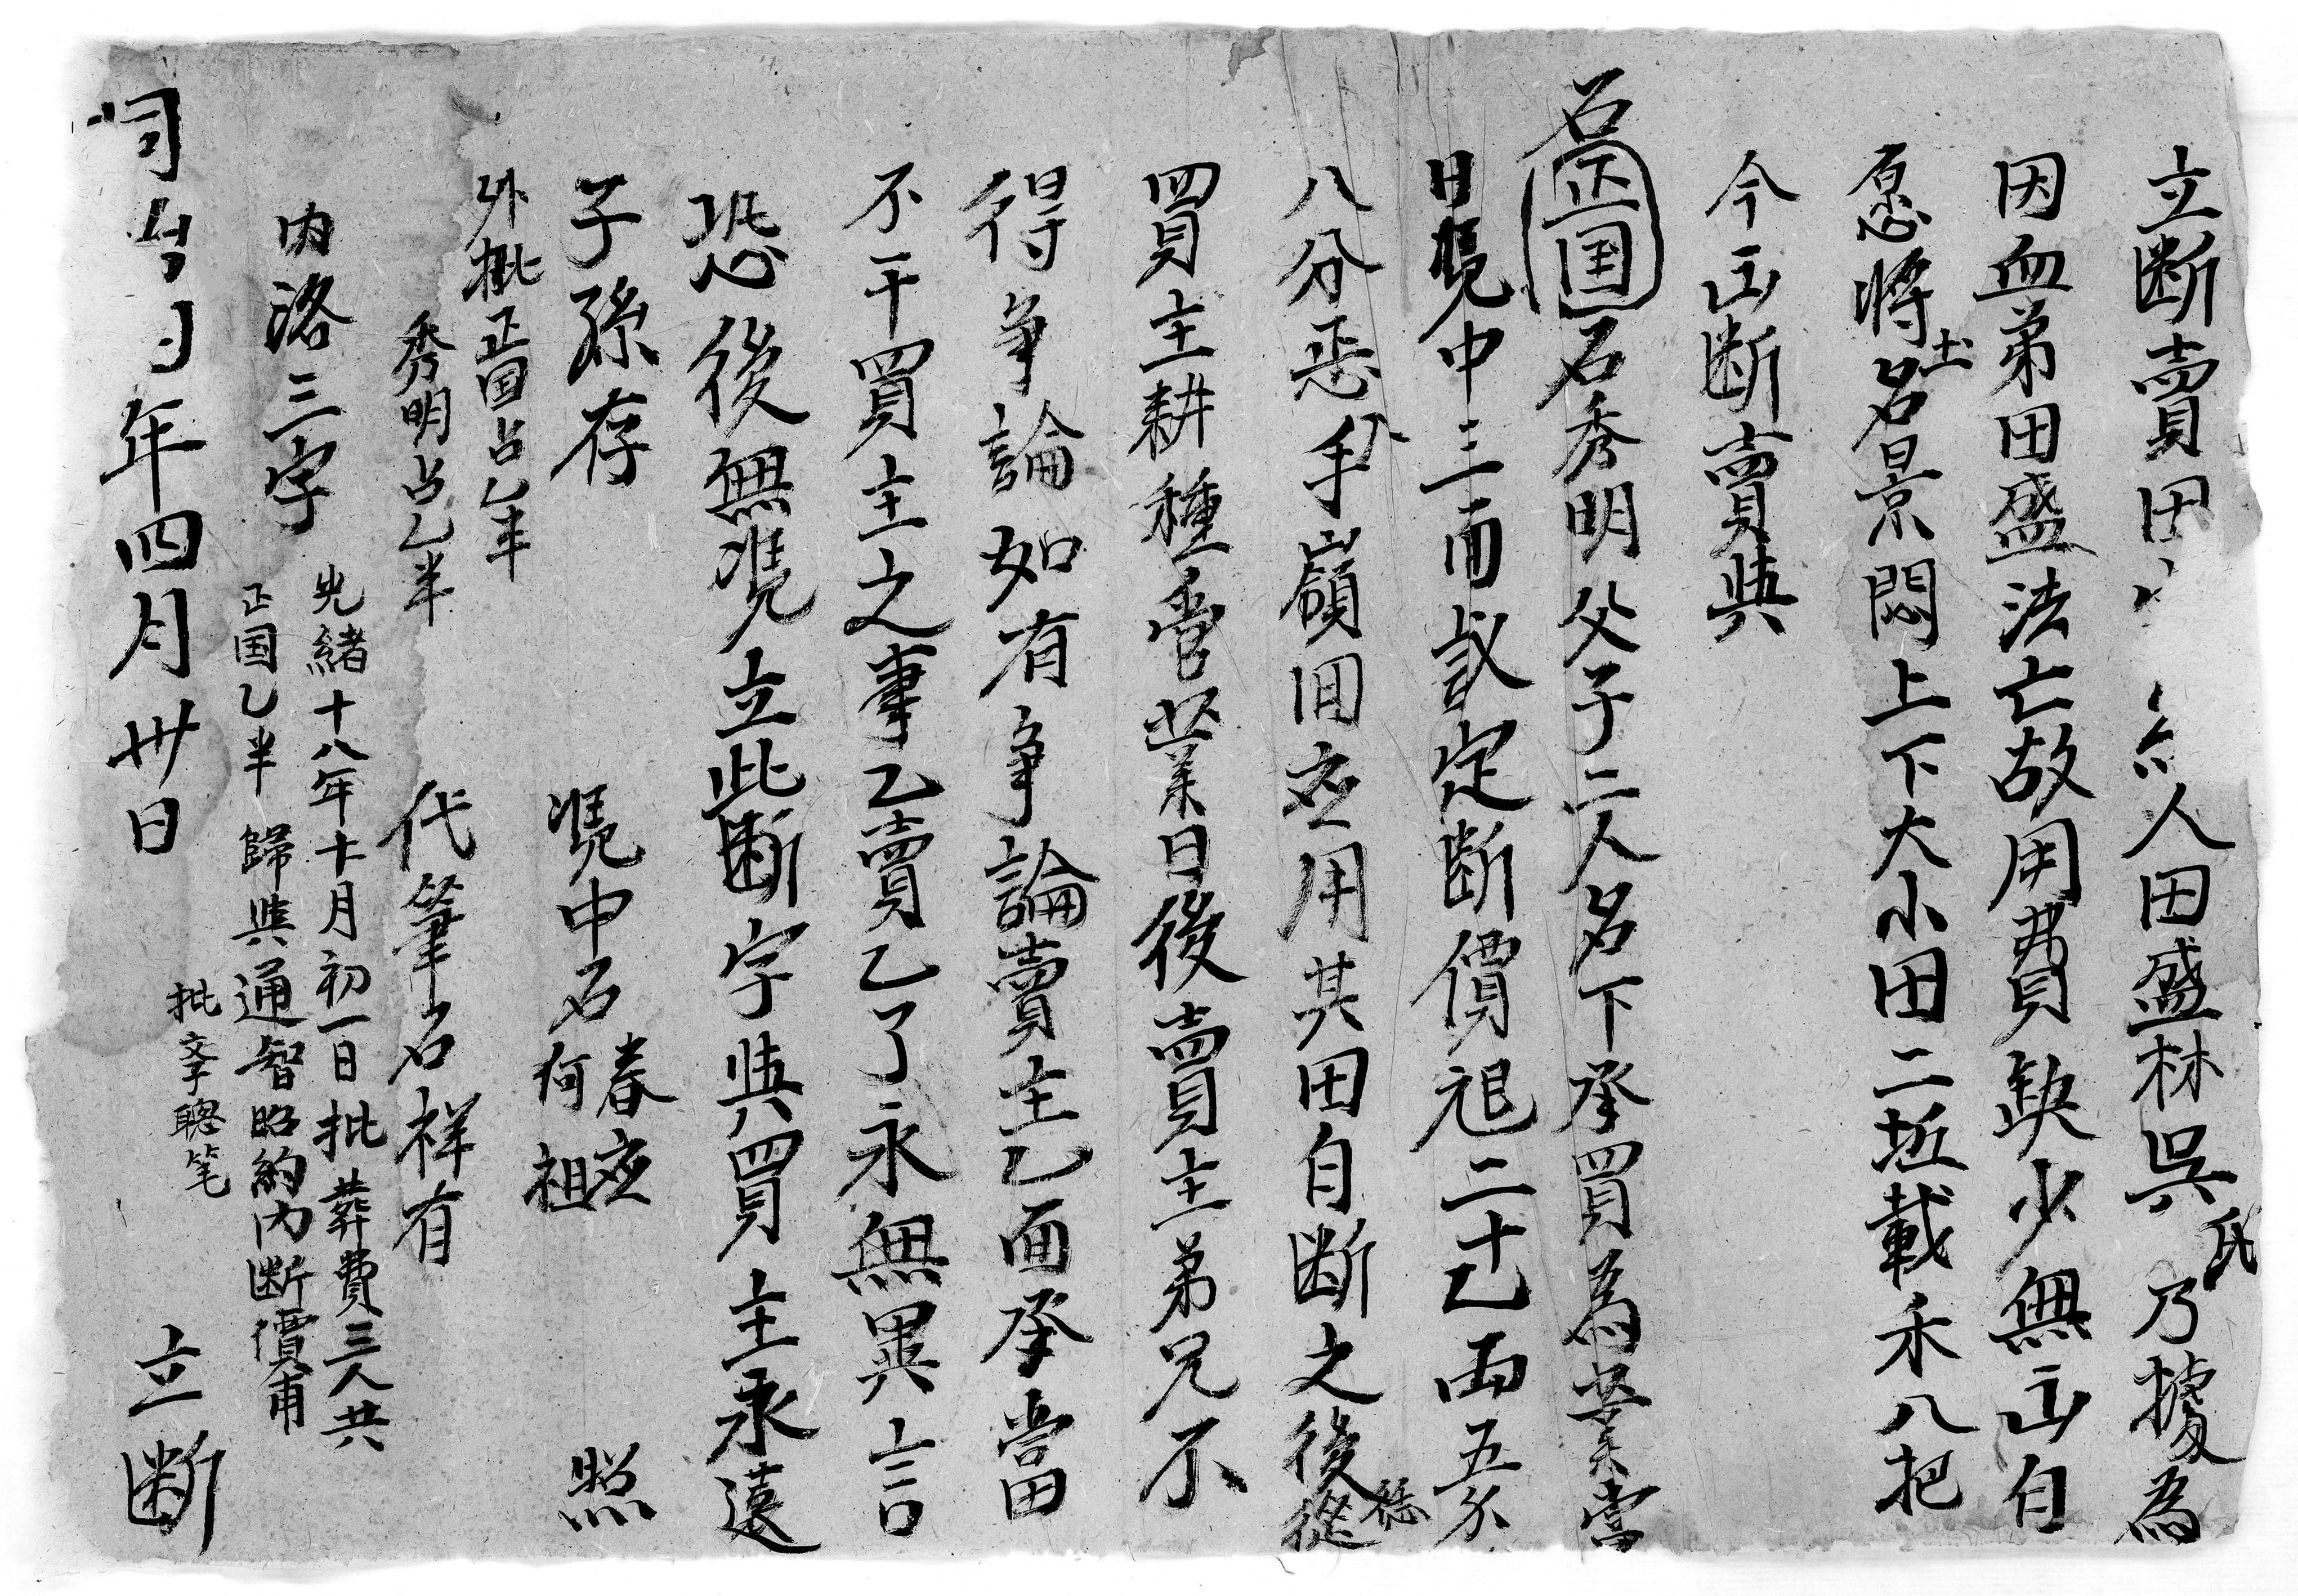 立断賣田 人田盛林吳氏乃據為
因血弟田盛法亡故用費缺少無出自
愿將土名景悶上下大小田二坵載禾八把
今出断賣與
石正国石秀明父子二人名下承買為業當
日凴中三面議定断價艮二十乙両五分
八分恶手嶺囬應用其田自断之後從
買主耕種管業日後賣主弟兄不
得争論如有争論賣主乙面承當
不干買主之事乙賣乙了永無異言
恐後無凴立此断字與買主永遠
子孫存照
外批正国占乙半
秀明占乙半
凴中石春應
何祖
代筆石祥有
内洛三字
光緒十八年十月初一日批葬費三人共
正国乙半歸與通智照約内断價
批字聰笔
同治 年四月卅日立断